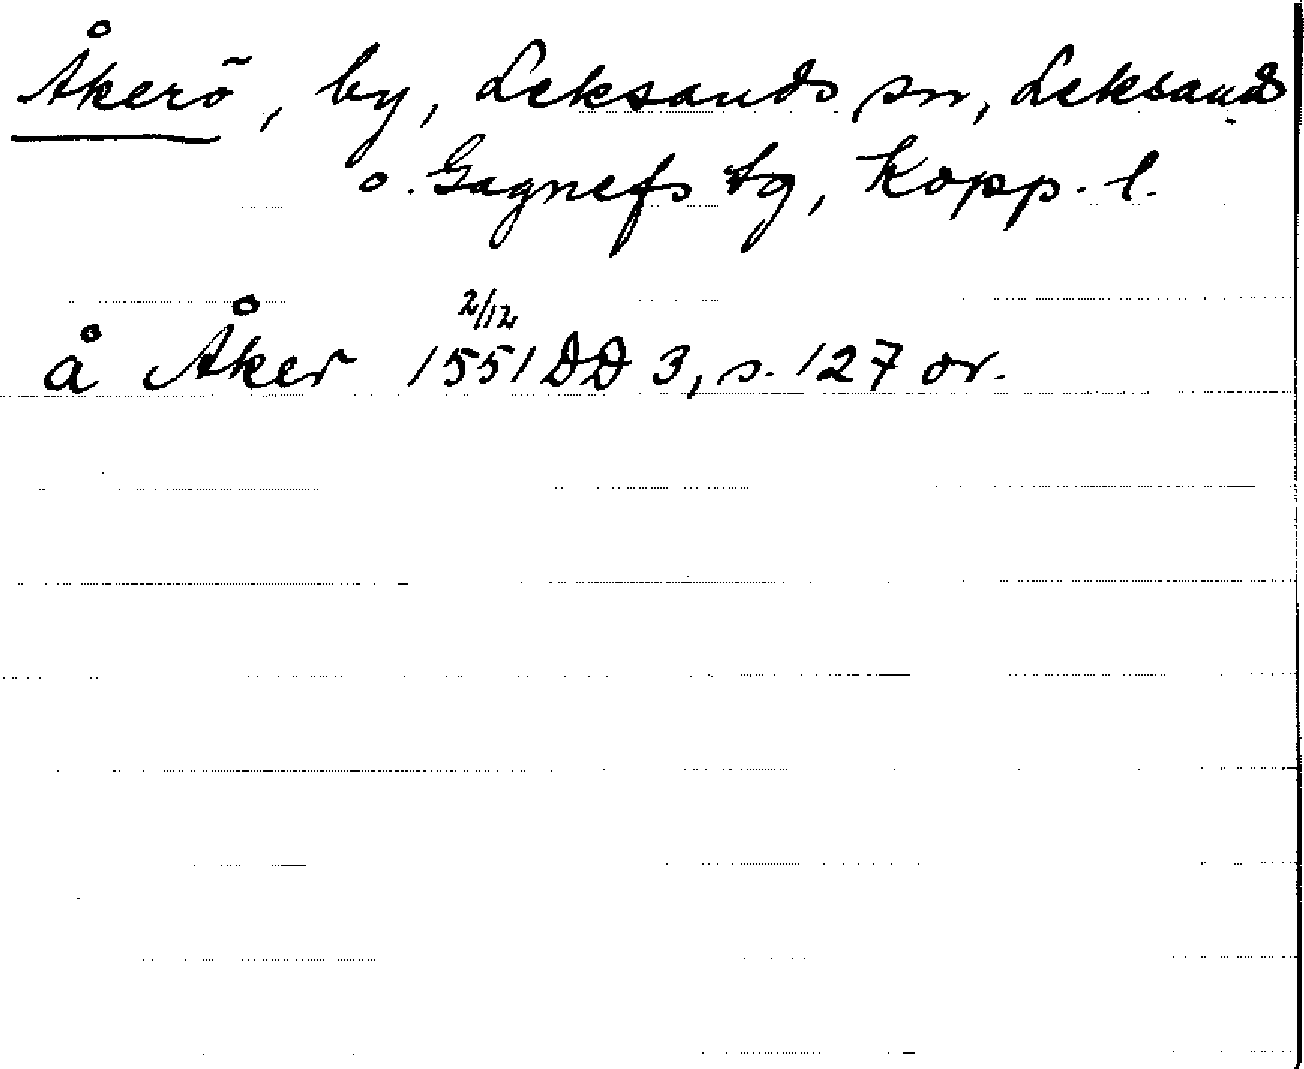 Åkerö, by, Leksands sn, Leksands
o. Gagnefs tg, Kopp. l.
å Åker 1551 2/12 DD 3, s. 127 or.